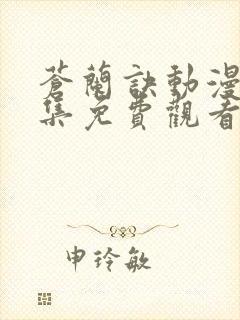 蒼蘭訣動漫
集免費觀看
申玲敏